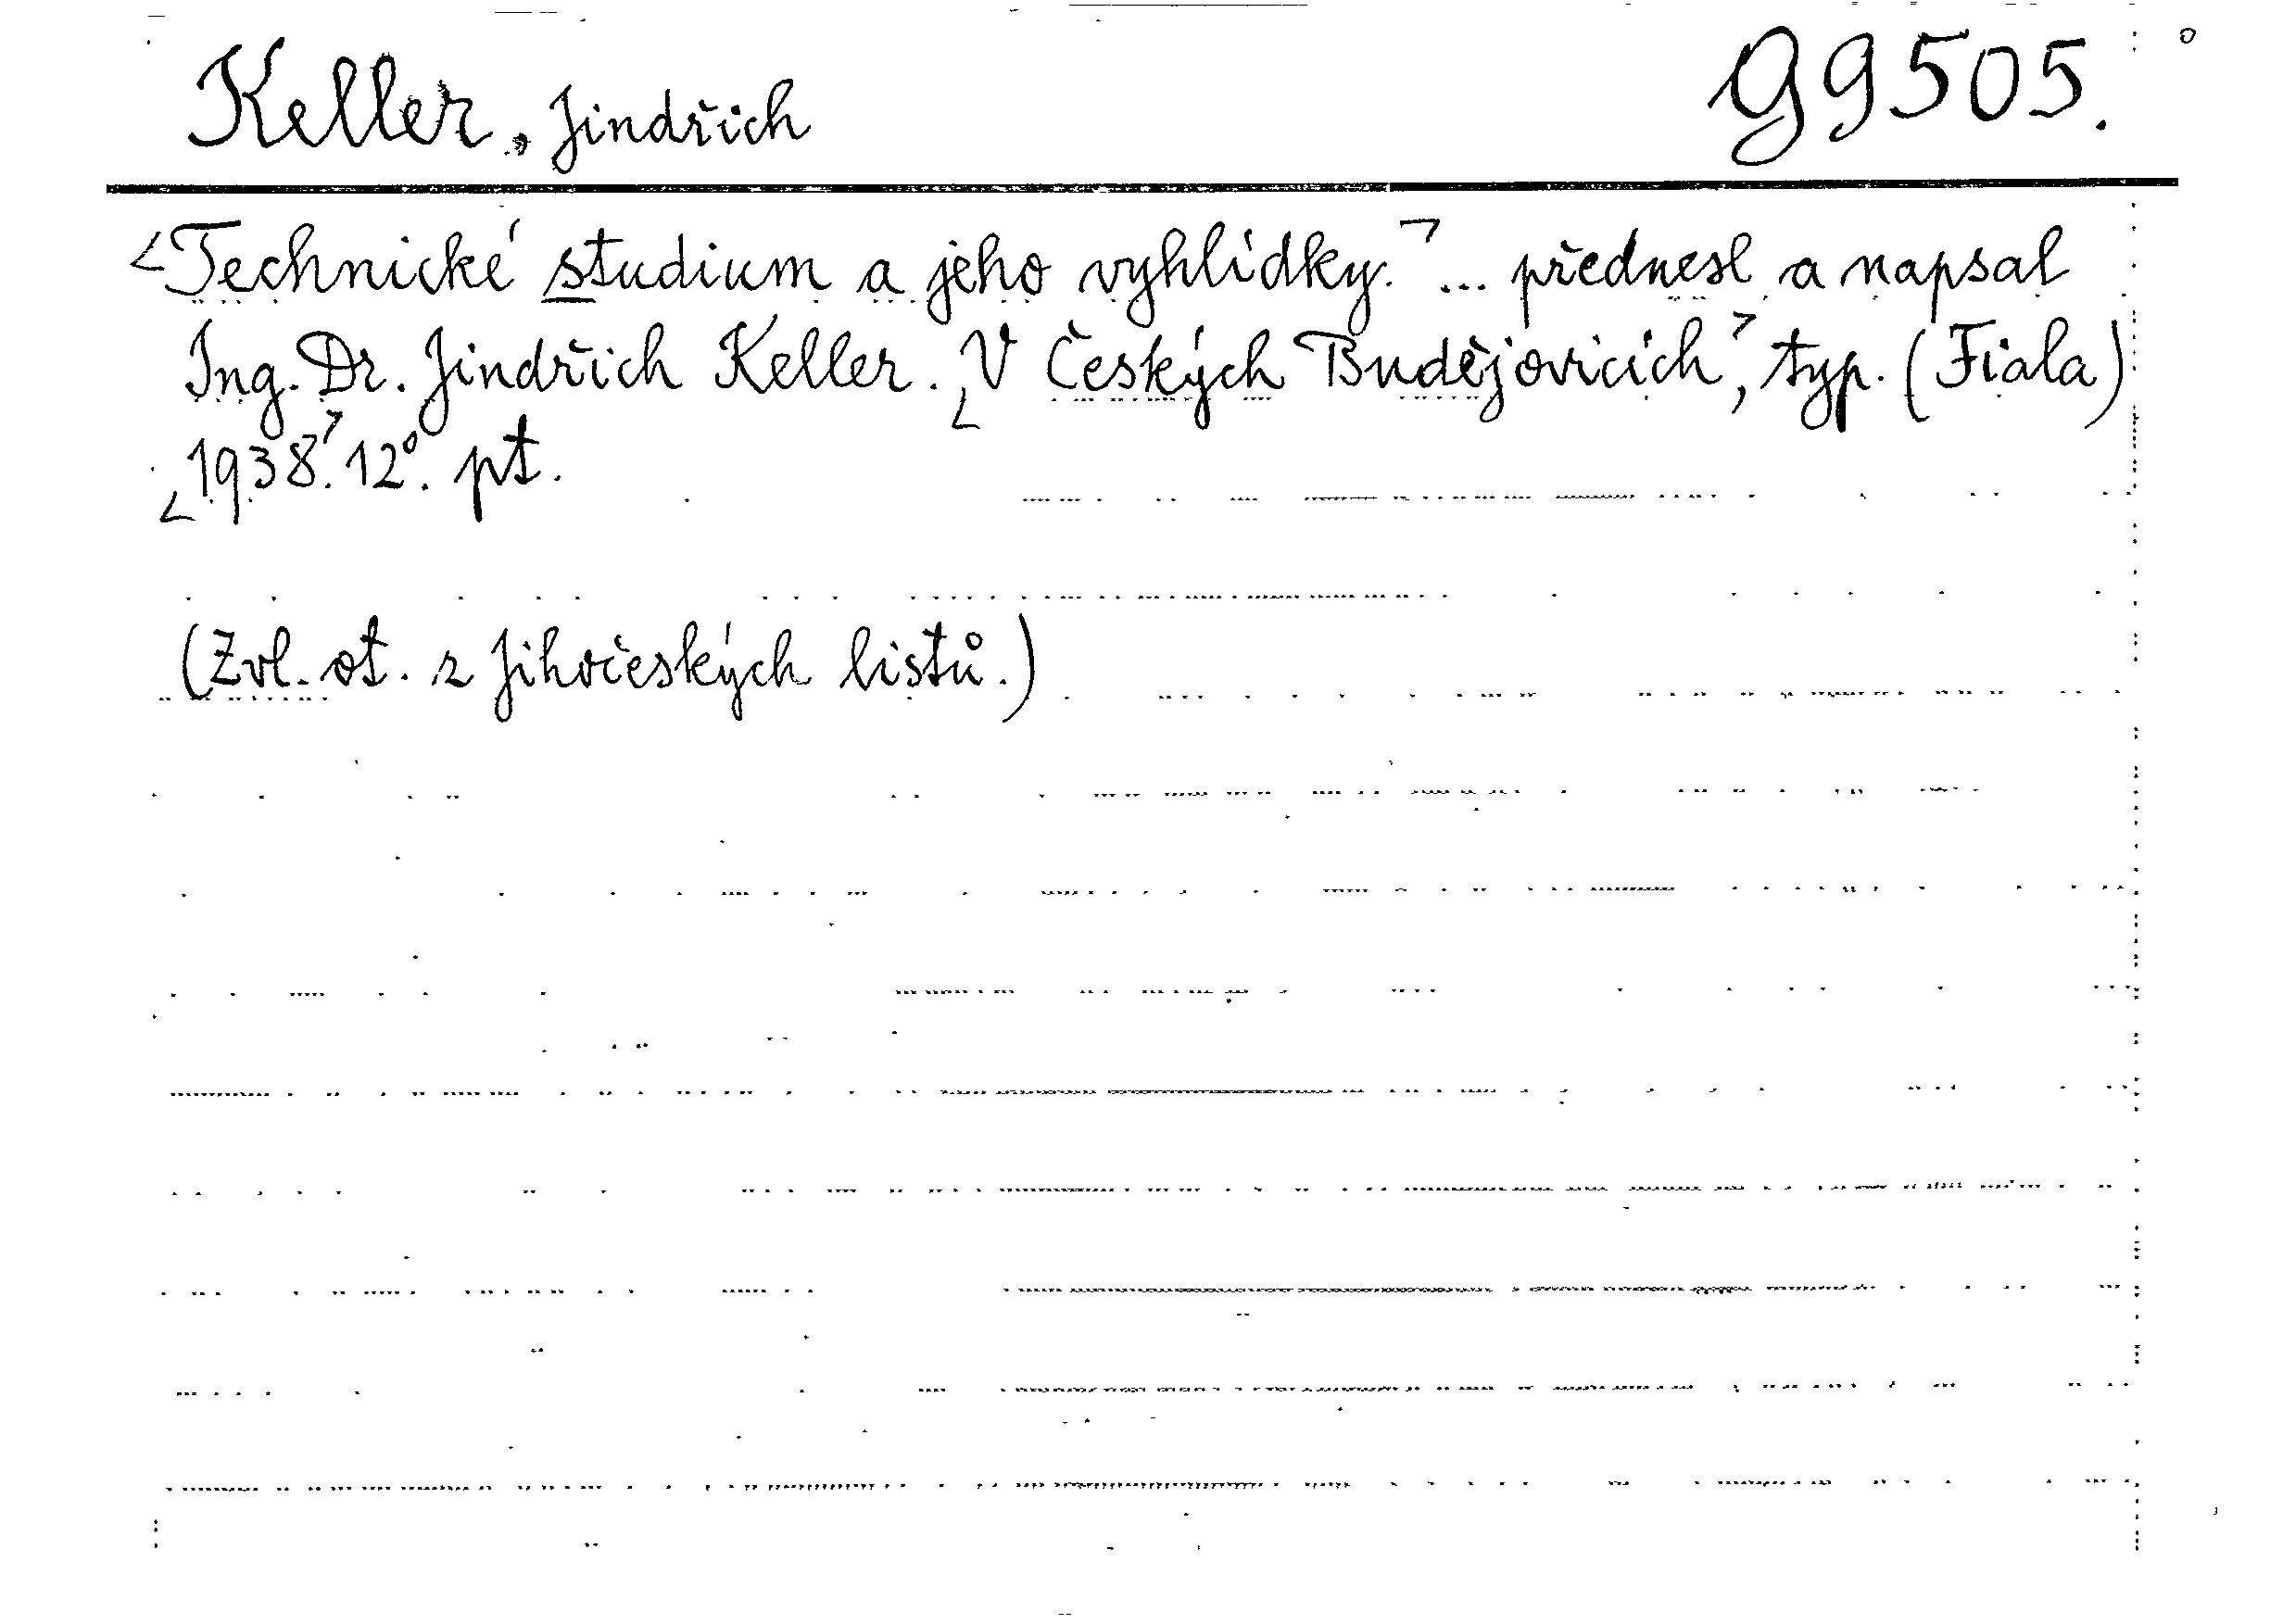 Keller, Jindřich
G 9505.
<Technické studium a jeho vyhlídky.> ... přednesl a napsal
Ing. Dr. Jindřich Keller. <V Českých Budějovicích>, typ. (Fiala)
<1938>. 12°. pt.
(Zvl. ot. z Jihočeských listů.)